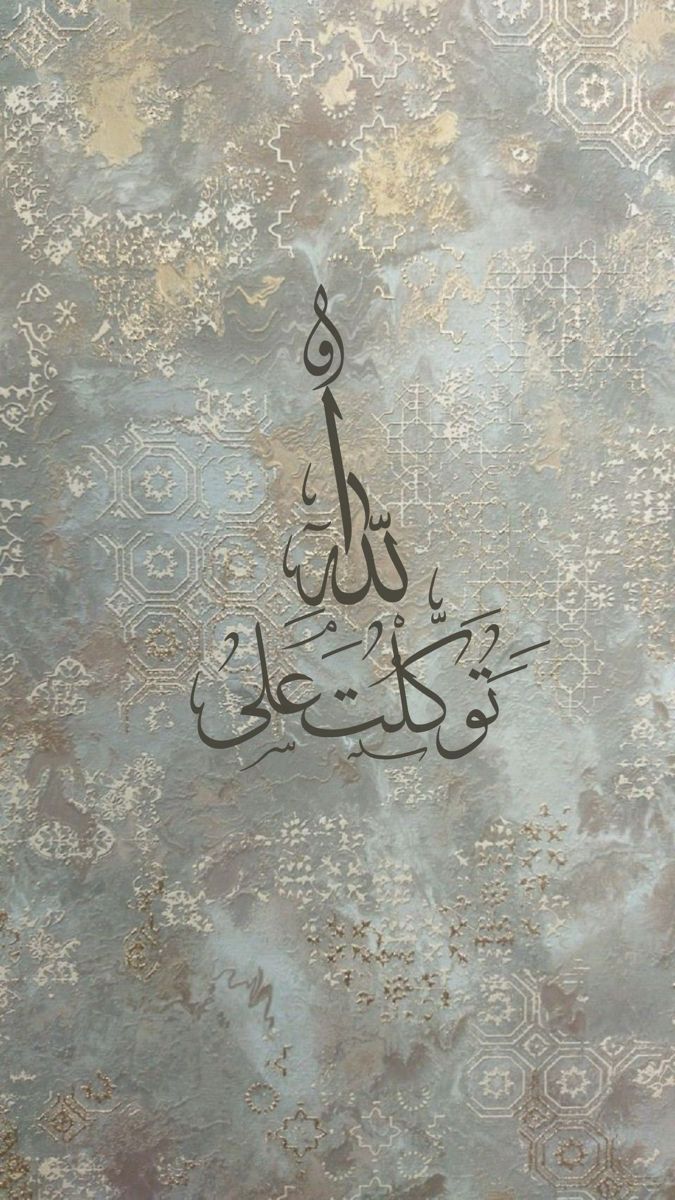 تَوَكَّلْتُ عَلَى
اللَّهِ